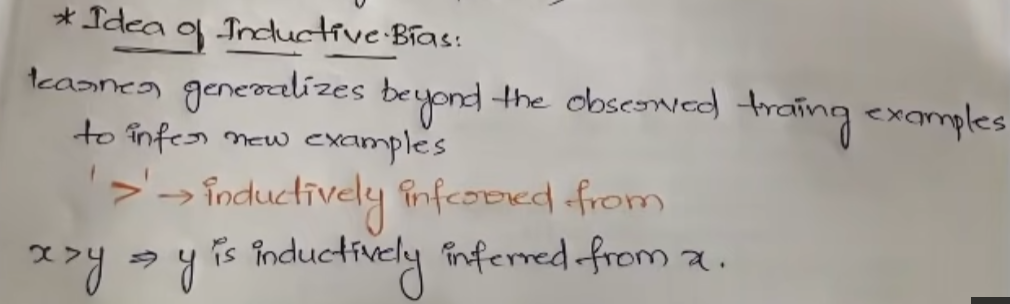 * Idea of Inductive Bias:
learner generalizes beyond the observed traing examples
to infer new examples
'>' → inductively inferred from
x>y ⇒ y is inductively inferred from x.